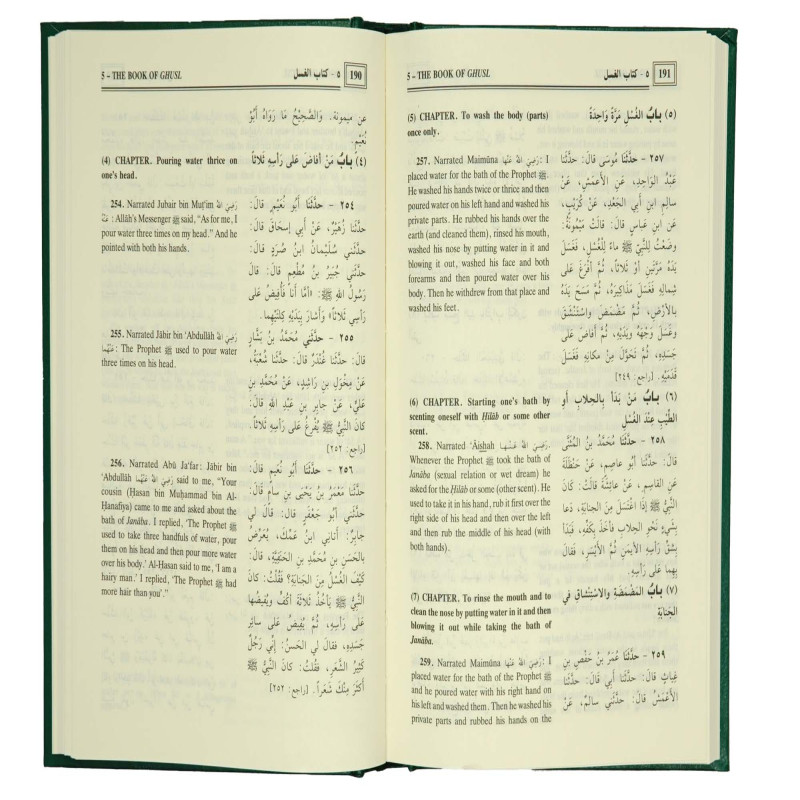 5 – THE BOOK OF GHUSL
٥ - كتاب الغسل
190
(4) CHAPTER. Pouring water thrice on
one's head.
254. Narrated Jubair bin Muṭ'im رَضِيَ اللهُ عَنْهُ
: Allāh's Messenger ﷺ said, "As for me, I
pour water three times on my head." And he
pointed with both his hands.
255. Narrated Jābir bin 'Abdullāh رَضِيَ اللهُ
عَنْهُمَا: The Prophet ﷺ used to pour water
three times on his head.
256. Narrated Abū Ja'far: Jābir bin
'Abdullāh رَضِيَ اللهُ عَنْهُمَا said to me, "Your
cousin (Ḥasan bin Muḥammad bin Al-
Ḥanafiya) came to me and asked about the
bath of Janāba. I replied, 'The Prophet ﷺ
used to take three handfuls of water, pour
them on his head and then pour more water
over his body.' Al-Ḥasan said to me, 'I am a
hairy man.' I replied, 'The Prophet ﷺ had
more hair than you'."
عن ميمونة. وَالصَّحِيحُ مَا رَوَاهُ أَبُو
نُعَيْمٍ.
(٤) بَابُ مَنْ أَفَاضَ عَلَى رَأْسِهِ ثَلَاثًا
٢٥٤ - حَدَّثَنَا أَبُو نُعَيْمٍ قَالَ:
حَدَّثَنَا زُهَيْرٌ، عَنْ أَبِي إِسْحَاقَ قَالَ:
حَدَّثَنِي سُلَيْمَانُ ابنُ صُرَدٍ قَالَ:
حَدَّثَنِي جُبَيْرُ بنُ مُطْعِمٍ قَالَ: قَالَ
رَسُولُ اللهِ ﷺ: «أَمَّا أَنَا فَأُفِيضُ عَلَى
رَأْسِي ثَلَاثًا» وَأَشَارَ بِيَدَيْهِ كِلْتَيْهِمَا.
٢٥٥ - حَدَّثَنِي مُحَمَّدُ بنُ بَشَّارٍ
قَالَ: حَدَّثَنَا غُنْدَرٌ قَالَ: حَدَّثَنَا شُعْبَةُ،
عَنْ مِخْوَلِ بنِ رَاشِدٍ، عَنْ مُحَمَّدِ بنِ
عَلِيٍّ، عَنْ جابِرِ بنِ عَبْدِ اللهِ قَالَ:
كَانَ النَّبِيُّ ﷺ يُفْرِغُ عَلَى رَأْسِهِ ثَلَاثًا.
[راجع: ٢٥٢]
٢٥٦ - حَدَّثَنَا أَبُو نُعَيْمٍ قَالَ:
حَدَّثَنَا مَعْمَرُ بنُ يَحْيَى بنِ سامٍ قَالَ:
حَدَّثَنِي أَبُو جَعْفَرٍ قَالَ: قَالَ لِي
جَابِرٌ: أَتَانِي ابنُ عَمِّكَ، يُعَرِّضُ
بِالحَسَنِ بنِ مُحَمَّدِ بنِ الحَنَفِيَّةِ، قَالَ:
كَيْفَ الغُسْلُ مِنَ الجَنَابَةِ؟ فَقُلْتُ: كَانَ
النَّبِيُّ ﷺ يَأْخُذُ ثَلَاثَةَ أَكُفٍّ وَيُفِيضُهَا
عَلَى رَأْسِهِ، ثُمَّ يُفِيضُ عَلَى سائِرِ
جَسَدِهِ، فقَالَ لِي الحَسَنُ: إِنِّي رَجُلٌ
كَثِيرُ الشَّعَرِ، فقُلْتُ: كَانَ النَّبِيُّ ﷺ
أَكْثَرَ مِنْكَ شَعَرًا. [راجع: ٢٥٢]
5 – THE BOOK OF GHUSL
٥ - كتاب الغسل
191
(5) CHAPTER. To wash the body (parts)
once only.
257. Narrated Maimūna رَضِيَ اللهُ عَنْهَا: I
placed water for the bath of the Prophet ﷺ.
He washed his hands twice or thrice and then
poured water on his left hand and washed his
private parts. He rubbed his hands over the
earth (and cleaned them), rinsed his mouth,
washed his nose by putting water in it and
blowing it out, washed his face and both
forearms and then poured water over his
body. Then he withdrew from that place and
washed his feet.
(6) CHAPTER. Starting one's bath by
scenting oneself with Ḥilāb or some other
scent.
258. Narrated 'Āishah رَضِيَ اللهُ عَنْهَا.
Whenever the Prophet ﷺ took the bath of
Janāba (sexual relation or wet dream) he
asked for the Ḥilāb or some (other scent). He
used to take it in his hand, rub it first over the
right side of his head and then over the left
and then rub the middle of his head (with
both hands).
(7) CHAPTER. To rinse the mouth and to
clean the nose by putting water in it and then
blowing it out while taking the bath of
Janāba.
259. Narrated Maimūna رَضِيَ اللهُ عَنْهَا: I
placed water for the bath of the Prophet ﷺ
and he poured water with his right hand on
his left and washed them. Then he washed his
private parts and rubbed his hands on the
(٥) بَابُ الغُسْلِ مَرَّةً وَاحِدَةً
٢٥٧ - حَدَّثَنَا مُوسَى قَالَ: حَدَّثَنَا
عَبْدُ الوَاحِدِ، عَنِ الأَعْمَشِ، عَنْ
سالِمِ ابنِ أَبِي الجَعْدِ، عَنْ كُرَيْبٍ،
عَنِ ابنِ عَبَّاسٍ قَالَ: قَالَتْ مَيْمُونَةُ:
وَضَعْتُ لِلنَّبِيِّ ﷺ مَاءً لِلْغُسْلِ، فَغَسَلَ
يَدَهُ مَرَّتَيْنِ أَوْ ثَلَاثًا، ثُمَّ أَفْرَغَ عَلَى
شِمَالِهِ فَغَسَلَ مَذَاكِيرَهُ، ثُمَّ مَسَحَ يَدَهُ
بِالأَرْضِ، ثُمَّ مَضْمَضَ وَاسْتَنْشَقَ
وَغَسَلَ وَجْهَهُ وَيَدَيْهِ، ثُمَّ أَفَاضَ عَلَى
جَسَدِهِ، ثُمَّ تَحَوَّلَ مِنْ مَكَانِهِ فَغَسَلَ
قَدَمَيْهِ. [راجع: ٢٤٩]
(٦) بَابُ مَنْ بَدَأَ بِالحِلَابِ أَوِ
الطِّيْبِ عِنْدَ الغُسْلِ
٢٥٨ - حَدَّثَنَا مُحَمَّدُ بنُ المُثَنَّى
قَالَ: حَدَّثَنَا أَبُو عاصِمٍ، عَنْ حَنْظَلَةَ
عَنِ القَاسِمِ، عَنْ عائِشَةَ قَالَتْ: كَانَ
النَّبِيُّ ﷺ إِذَا اغْتَسَلَ مِنَ الجَنَابَةِ، دَعَا
بِشَيْءٍ نَحْوِ الحِلَابِ فأَخَذَ بِكَفِّهِ، فَبَدَأَ
بِشِقِّ رَأْسِهِ الأَيْمَنِ ثُمَّ الأَيْسَرِ، فقَالَ
بِهِمَا عَلَى رَأْسِهِ.
(٧) بَابُ المَضْمَضَةِ وَالاسْتِنْشَاقِ فِي
الجَنَابَةِ
٢٥٩ - حَدَّثَنَا عُمَرُ بنُ حَفْصِ بنِ
غِيَاثٍ قَالَ: حَدَّثَنَا أَبِي قَالَ: حَدَّثَنَا
الأَعْمَشُ قَالَ: حَدَّثَنِي سالِمٌ، عَنْ